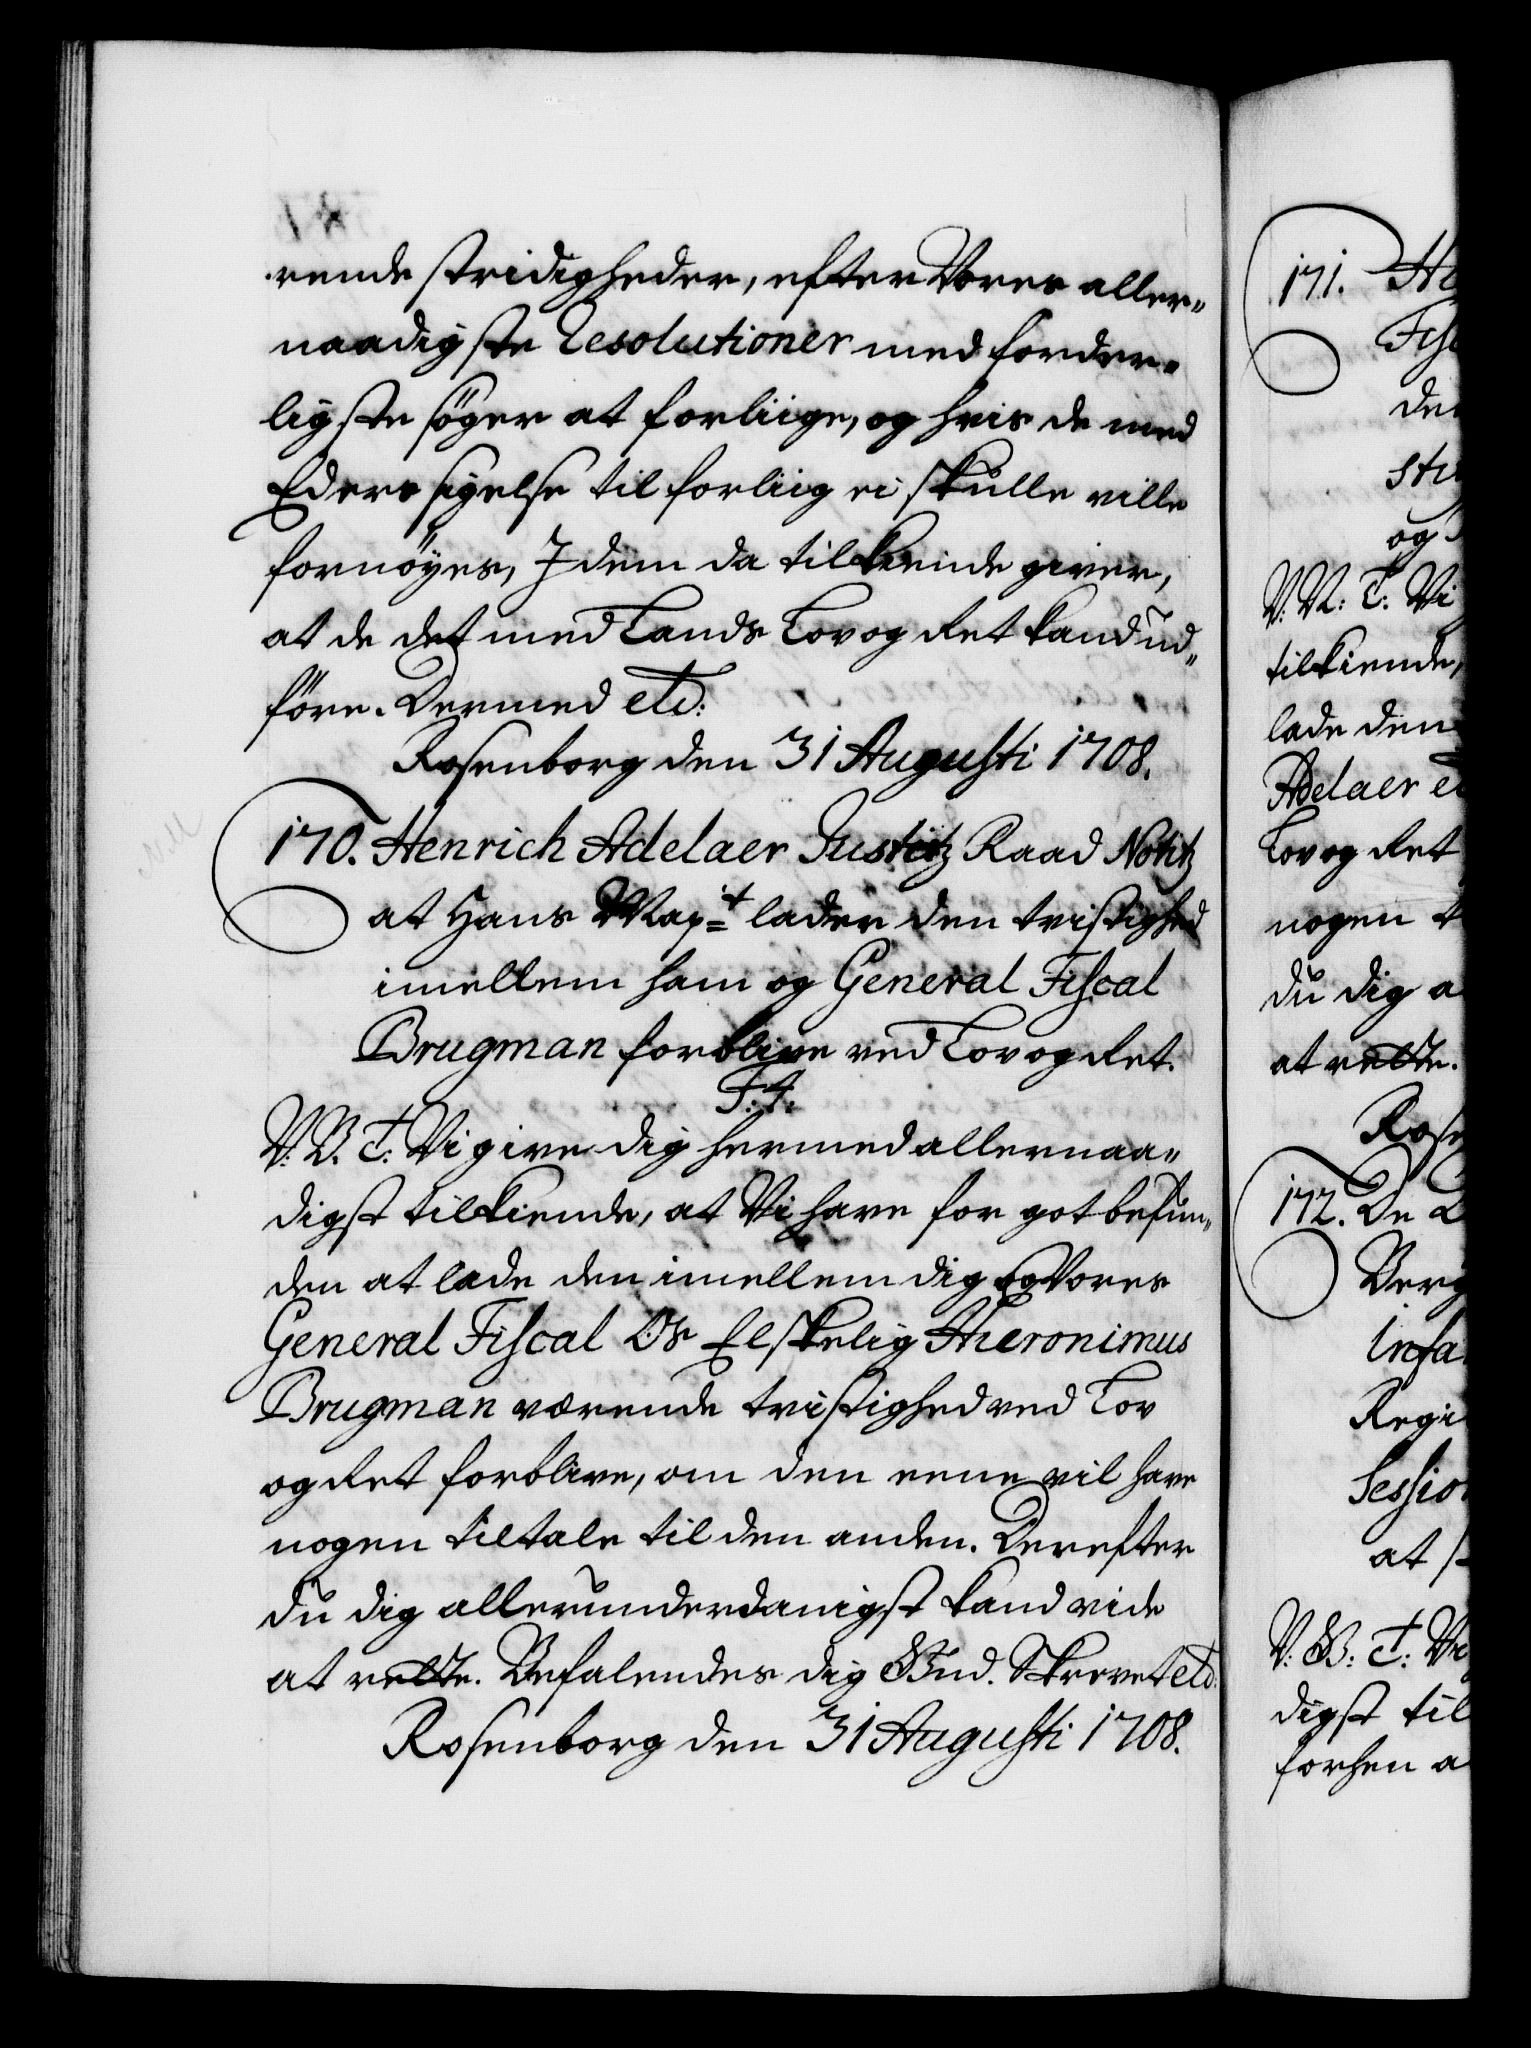 rende stridigheder, efter Vores aller-
naadigste Resolutioner med forder-
ligste søger at forliige, og hvis de med
Eders sigelse til forliig ei skulle ville
fornøyes, I dem da tilkiende giver,
at de det med Lands Lov og Ret kand ud-
føre. Dermed etc:
Rosenborg den 31 Augusti 1708.
170. Henrich Adelaer Justitz Raad Notitz
at Hans Maj:t lader den tvistighed
imellem ham og General Fiscal
Brugman forblive ved Lov og Ret.
F. 4.
V. G. T. Vi give dig hermed allernaa-
digst tilkiende, at Vi have for got befun-
den at lade den imellem dig og Vores
General Fiscal Os Elskelig Hieronimus
Brugman værende tvistighed ved Lov
og Ret forblive, om den eene vil have
nogen tiltale til den anden. Derefter
du dig allerunderdanigst kand vide
at rette. Befalendes dig Gud. Skrevet etc:
Rosenborg den 31 Augusti 1708.
171. He
Fisc
den
og
V. G. T. Vi
tilkiende,
lade den
Adelaer
Lov og Ret
nogen t
du dig a
at rette.
Rose
172. De
Berg
Infa
Regi
Session
at
V. G. T. Vi
digst til
forhen a